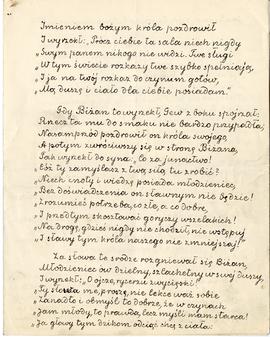 Imieniem bożym króla pozdrowił
I wyrzekł: „Prócz ciebie ta sala niech nigdy
„Swym panem nikogo nie widzi. Twe sługi
„W tym świecie rozkazy twe szybko spełniają,
„I ja na twój rozkaz do czynum gotów,
„Ma, duszę i ciało dla ciebie posiadam."
Gdy Biżan to wyrzekł, Gew z boku spojrzał;
Rzecz ta mu do smaku nie bardzo przypadła;
Naramprzód pozdrowił on króla swojego,
A potym zwróciwszy się w stronę Biżana,
Tak wyrzekł do syna: „Co za junactwo!
„Cóż ty zamyślasz z twą siłą tu zrobić?
„Niech cnoty i wiedzę posiada młodzieniec,
„Bez doświadczenia on sławnym nie będzie!
„Zrozumieć potrzeba, co złe, a co dobre,
„I przedtym skosztować goryczy wszelakich!
„Na drogę, gdzieś nigdy nie chodził, nie wstępuj
„I sławy tym króla naszego nie zmniejszaj!"
Za słowa te srodze rozgniewał się Biżan,
Młodzieniec ów dzielny, szlachetny w swej duszy,
I wyrzekł: „O ojcze, rycerzu zwycięski!
„Ty słowa me, proszę, nie lekce waż sobie
„Zanadto i obmyśl to dobrze, że w czynach
„Jam młody, to prawda, lecz myśli mam starca!
„Ja głowy tym dzikom odciąć chcę z ciała: